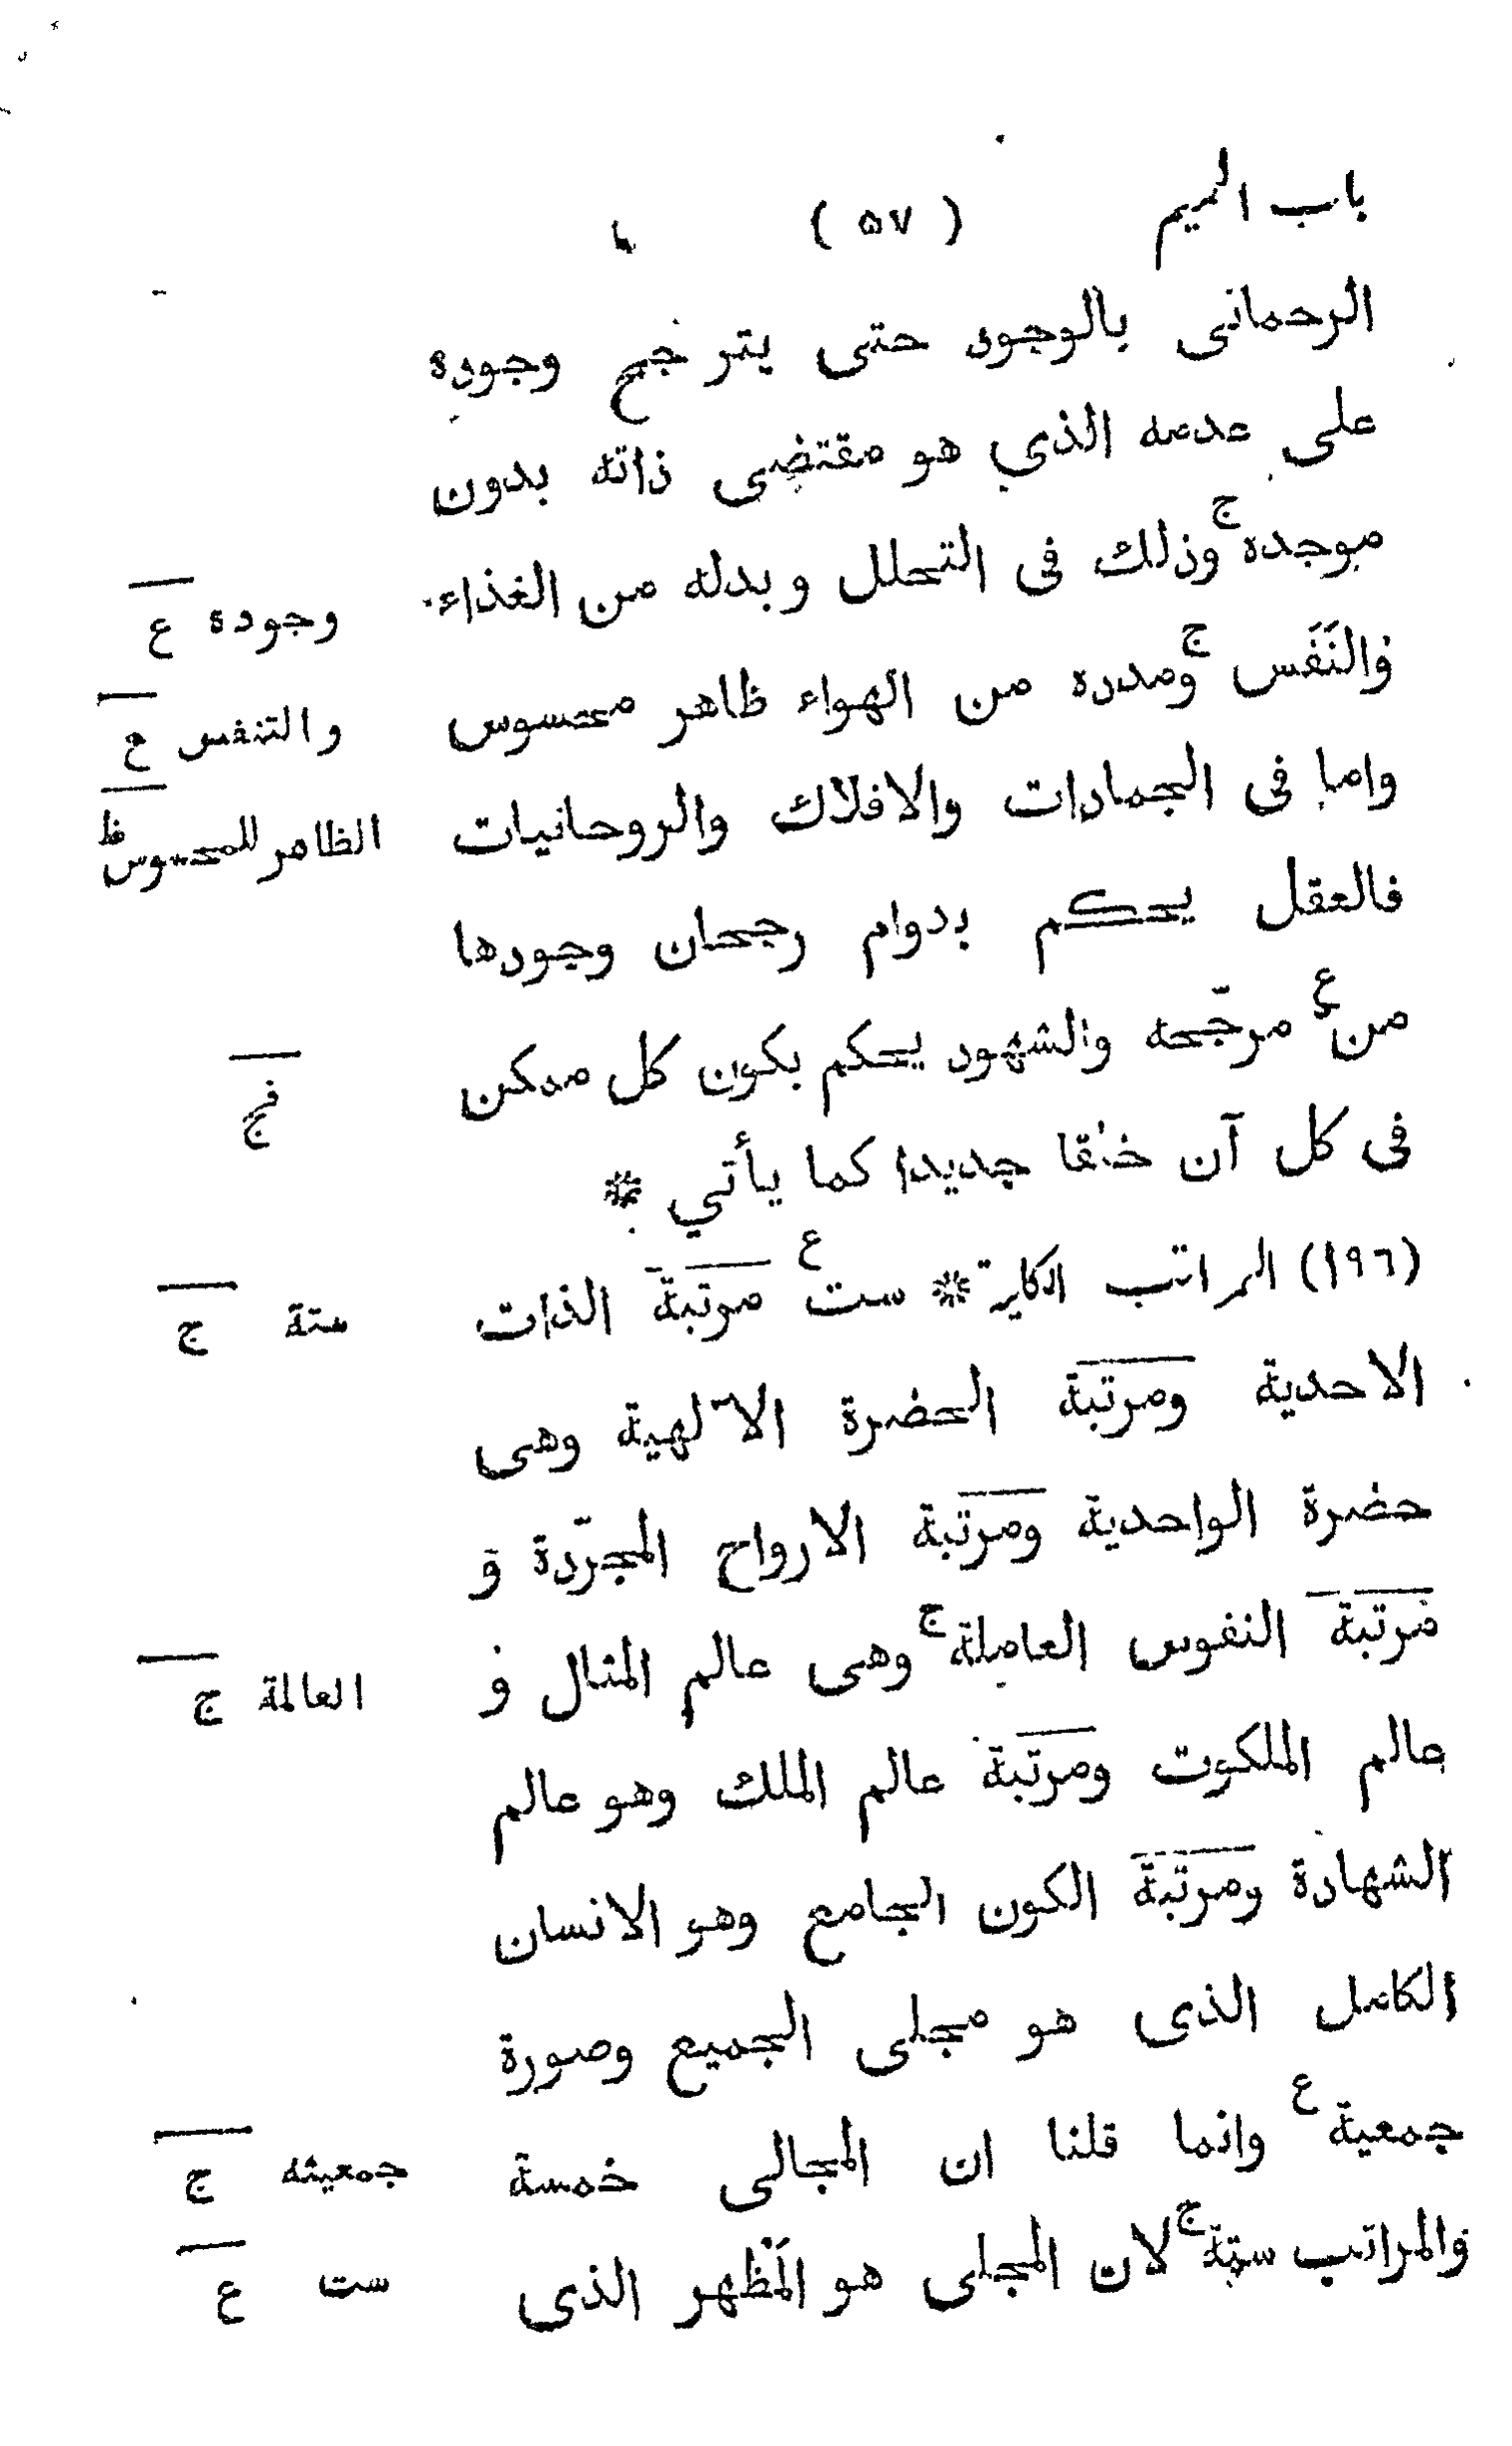 باب الميم ( ٥٧ )
الرحمانى بالوجود حتى يترجح وجوده
على عدمه الذى هو مقتضى ذاته بدون
موجده ج وذلك فى التحلل وبدله من الغذاء وجوده ع
والنَفَس ج ومدده من الهواء ظاهر محسوس والتنفس ع
واما فى الجمادات والافلاك والروحانيات الظاهر للمحسوس ظ
فالعقل يحكم بدوام رجحان وجودها
من ع مرجّحه والشهود يحكم بكون كل ممكن فى ج
فى كل آن خلقا جديدا كما يأتي *
(١٩٦) المراتب الكلية * ست ع مرتبة الذات ستة ج
الاحدية ومرتبة الحضرة الالهية وهى
حضرة الواحدية ومرتبة الارواح المجرّدة و
مرتبة النفوس العاملة ج وهى عالم المثال و العالمة ج
عالم الملكوت ومرتبة عالم الملك وهو عالم
الشهادة ومرتبة الكون الجامع وهو الانسان
الكامل الذى هو مجلى الجميع وصورة
جمعية ع وانما قلنا ان المجالى خمسة جمعيته ج
والمراتب ستة ج لان المجلى هو المَظهر الذى ست ع